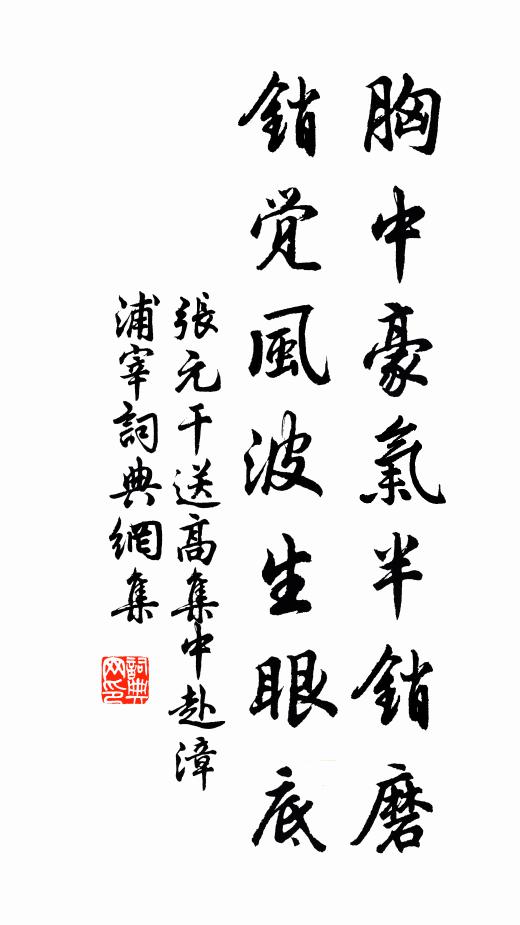 胸中豪氣半銷磨
銷覚風波生眼底
張元干送高集中赴漳
浦宰詞典網集
詞典
网印